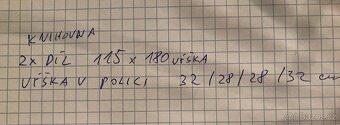 KNIHOVNA
2x DÍL 115 x 180 VÝŠKA
VÝŠKA V POLICI 32 / 28 / 28 / 32 cm